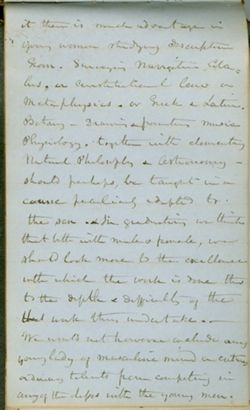 it there is much advantage in
young women studying Descriptive
Geom. Surveying Navigation Calcu-
lus, or Constitutional Law or
Metaphysics - or Greek & Latin.
Botany - Drawing & painting music
Physiology, together with elementary
Natural Philosophy & Astronomy -
should perhaps, be taught in a
course peculiarly adapted to
the sex. & in graduating we think
that both with male & female, we
should look more to the excellence
with which the work is done than
to the depth & difficulty of the
work they undertake.
We would not however exclude any
young lady of masculine mind
talents from competing in
any of the depts with the young men.